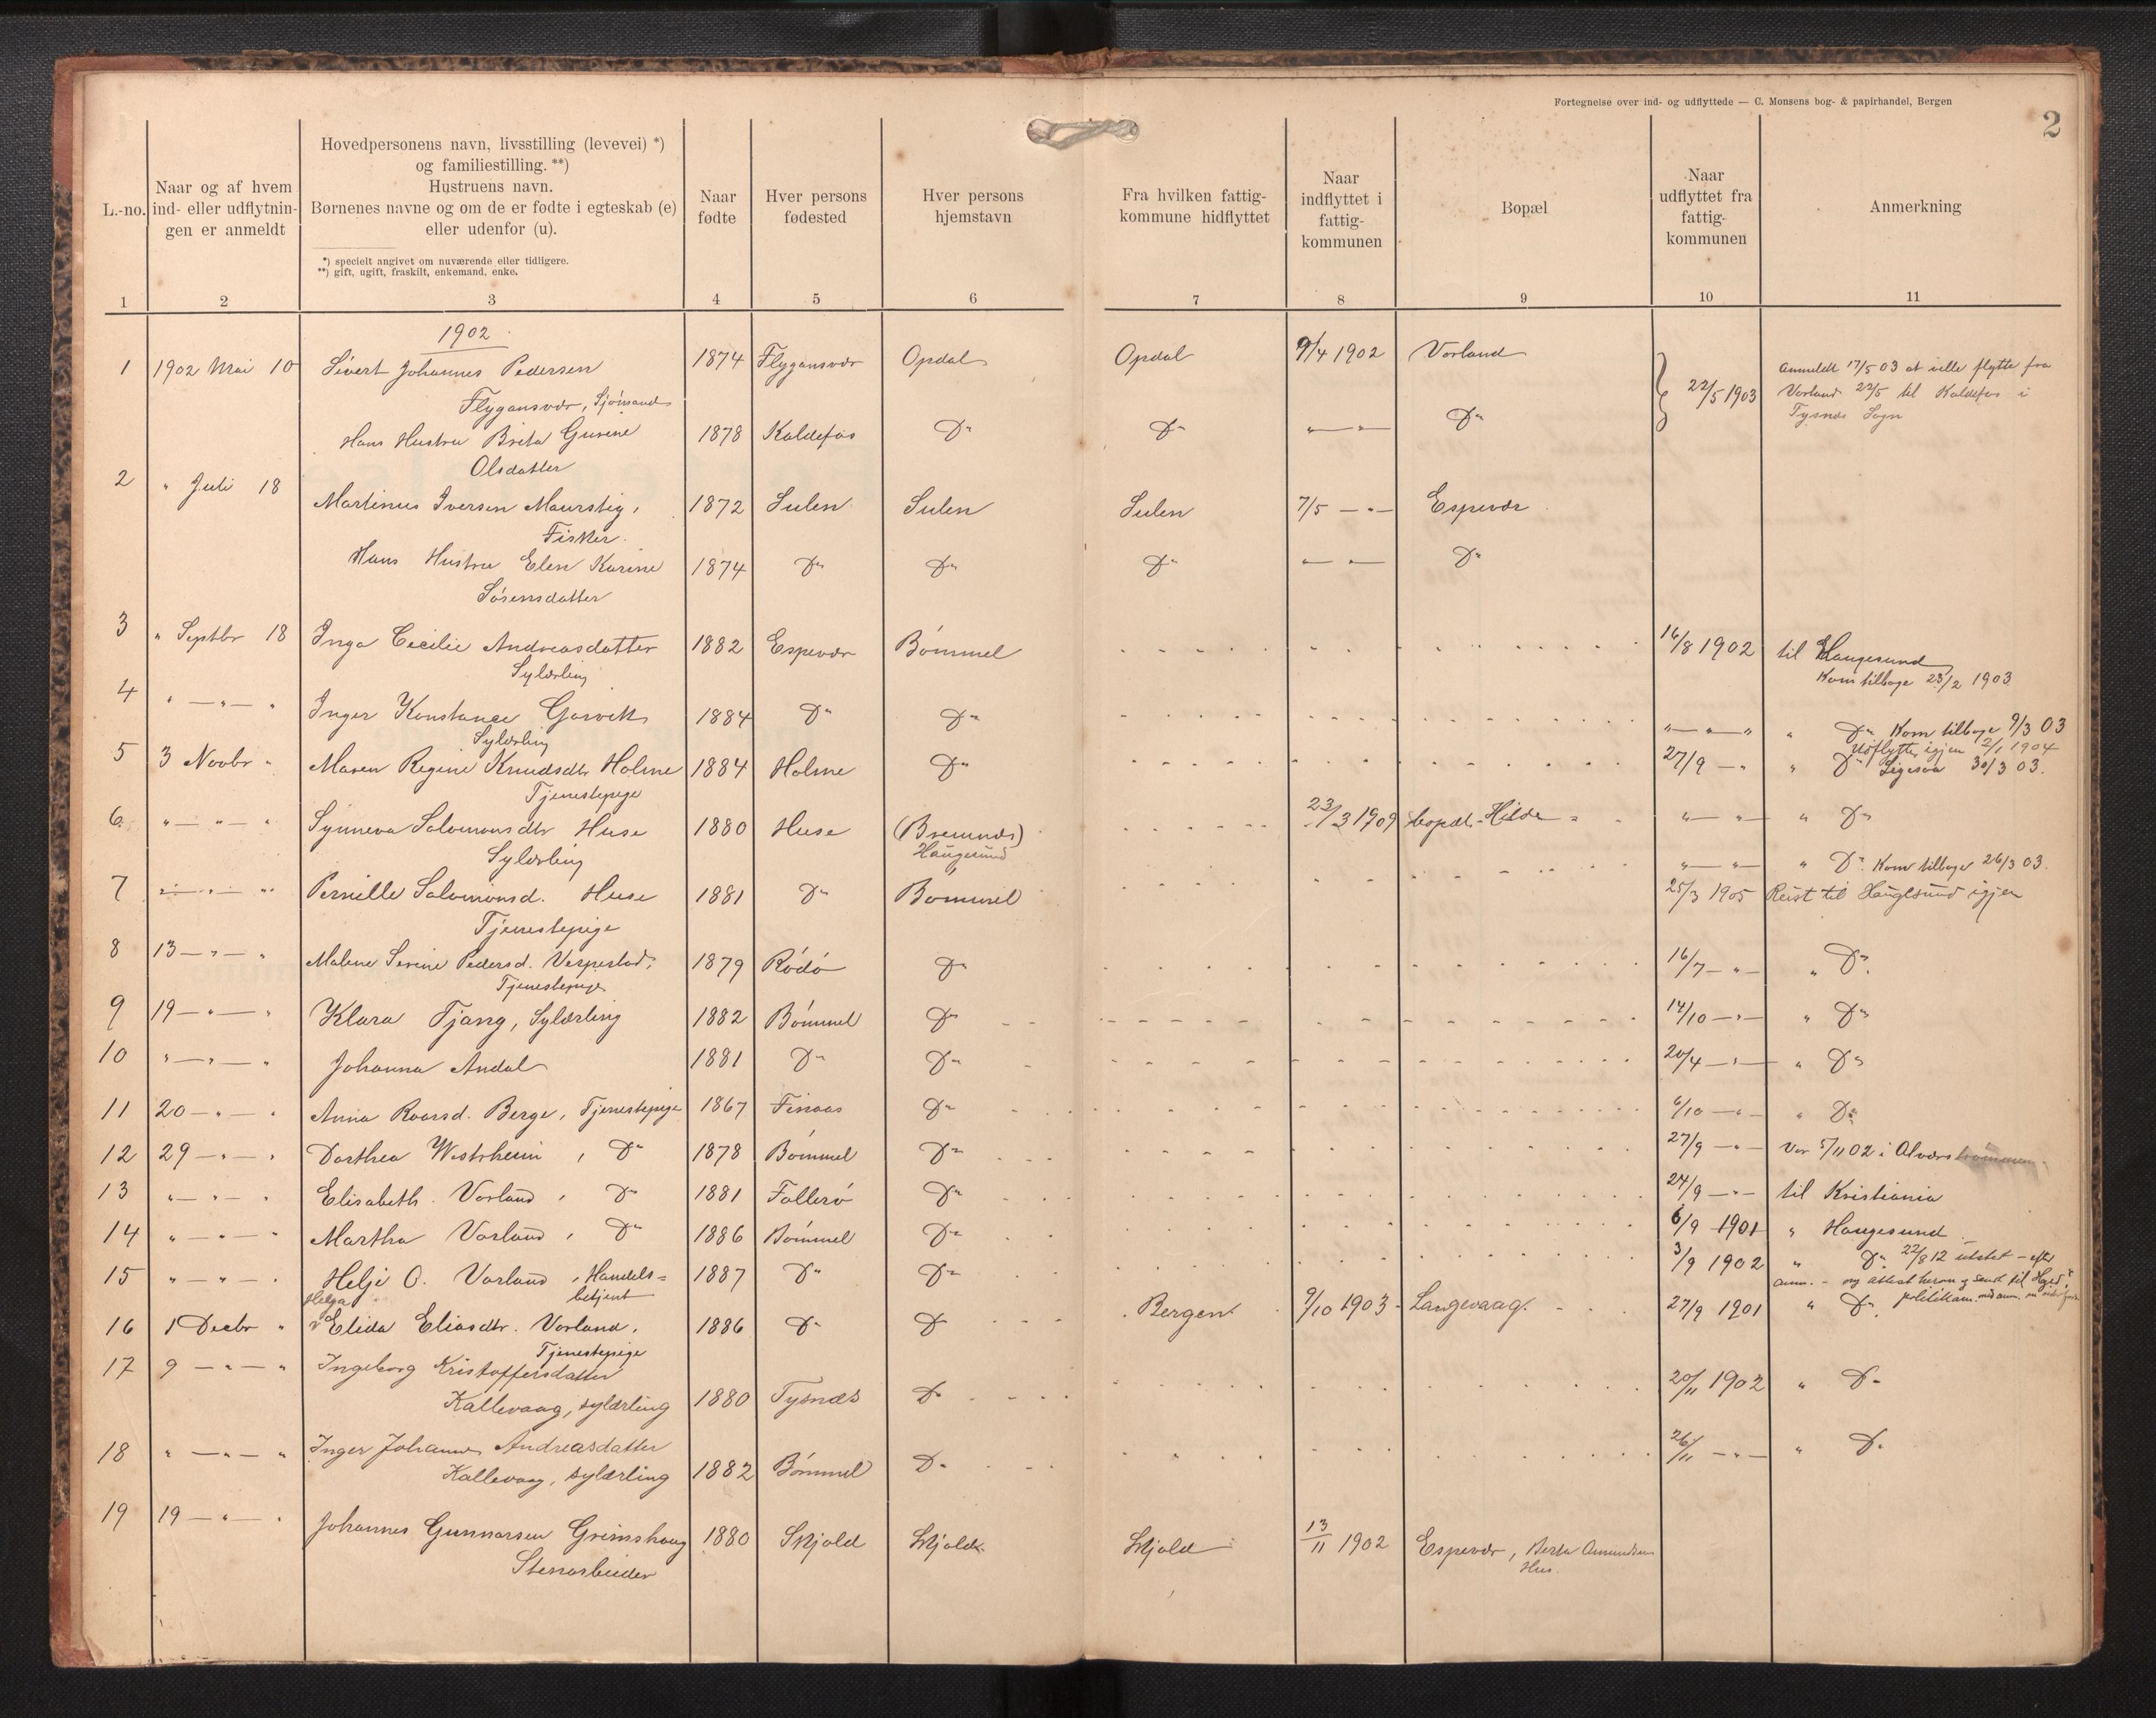 Fortegnelse over ind- og udflyttede — C. Monsens bog- & papirhandel, Bergen
2
L.-no.
Naar og af hvem
ind- eller udflytnin-
gen er anmeldt
Hovedpersonens navn, livsstilling (levevei) *)
og familiestilling. **)
Hustruens navn.
Børnenes navne og om de er fødte i egteskab (e)
eller udenfor (u).
*) specielt angivet om nuværende eller tidligere.
**) gift, ugift, fraskilt, enkemand, enke.
Naar
fødte
Hver persons
fødested
Hver persons
hjemstavn
Fra hvilken fattig-
kommune hidflyttet
Naar
indflyttet i
fattig-
kommunen
Bopæl
Naar
udflyttet fra
fattig-
kommunen
Anmerkning
1 2 3 4 5 6 7 8 9 10 11
1902
1 1902 Mai 10 Sivert Johannes Pedersen 1874 Flygansvær Opdal Opdal 9/4 1902 Vorland
Flygansvær, Sjömand
22/5 1903 Anmeldt 17/5 03 at ville flytte fra
Vorland 22/5 til Kaldefos i
Tysnes Sogn
Hans Hustru Brita Gurine 1878 Kaldefos Do Do " — " — Do
Olsdatter
2 " Juli 18 Martinus Iversen Maurstig, 1872 Sulen Sulen Sulen 7/5 — " — Espevær
Fisker
Hans Hustru Elen Karine 1874 Do Do Do " — " — Do
Sörensdatter
3 " Septbr 18 Inga Cecilie Andreasdatter 1882 Espevær Bömmel 16/8 1902 til Haugesund
Sylærling Kom tilbage 23/2 1903
4 " — " — " Inger Konstance Gorvik 1884 Do Do " — " — " " Do Kom tilbage 9/3 03
Sylærling Udflyttet igjen 2/1 1904
5 3 Novbr " Maren Regine Knudsdtr Holme 1884 Holme Do 27/9 — " " Do Ligesaa 30/3 03.
Tjenestepige
6 " — " — " Synneva Salomonsdtr Huse 1880 Huse (Bremnes) 23/3 1909 bopæl Hilde " — " — " Do
Sylærling Haugesund
" — " — " Do Kom tilbage 26/3 03.
7 " — " — " Pernille Salomonsd. Huse 1881 Do Bömmel 25/3 1905 Reist til Haugesund igjen
Tjenestepige
8 13 — " — " Malene Serine Pedersd. Vespestad, 1879 Rödö Do 16/7 — " — " Do
Tjenestepige
9 19 — " — " Klara Tjang, Sylærling 1882 Bömmel Do 14/10 — " — " Do
10 " — " — " Johanna Andal 1881 Do Do 20/4 — " — " Do
11 20 — " — " Anna Roarsd. Berge, Tjenestepige 1867 Finaas Do 6/10 — " — " Do
12 29 — " — " Dorthea Westrheim, Do 1878 Bömmel Do 27/9 — " — Var 5/11 02 i Alvers
13 " — " — " Elisabeth Vorland, Do 1881 Folleró Do 24/9 — " — til Kristiania
14 " — " — " Martha Vorland, Do 1886 Bömmel Do 6/9 1901 " Haugesund
15 " — " — " Helje O. Vorland, Handels= 1887 Do Do 3/9 1902 " Do 22/8 12 utstet — efter
betjent anm. — ny attest herom og sendt til Hgsd
politikam.
Helga
16 1 Decbr " Elida Eliasdtr. Vorland, 1886 Do Do Bergen 9/10 1903 Langevaag. 27/9 1901 " Do
Tjenestepige
17 9 — " — " Ingeborg Kristoffersdatter
Kallevaag, sylærling 1880 Tysnæs Do 20/11 1902 " Do
18 " — " — " Inger Johanne Andreasdatter
Kallevaag, sylærling 1882 Bömmel Do 26/11 — " — " Do
19 19 — " — " Johannes Gunnarsen Grimshaug 1880 Skjold Skjold Skjold 13/11 1902 Espevær, Berta Amundsens
Stenarbeider Hus.